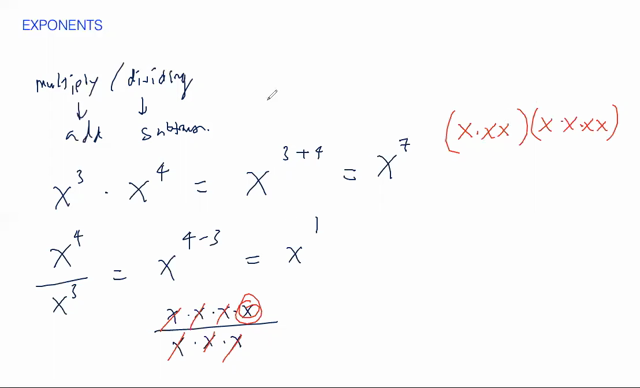 EXPONENTS
multiply / dividing
add subtrac.
x³ · x⁴ = x³⁺⁴ = x⁷
(x·xx)(x·x·xx)
x⁴/x³ = x⁴⁻³ = x¹
x·x·x·x
x·x·x